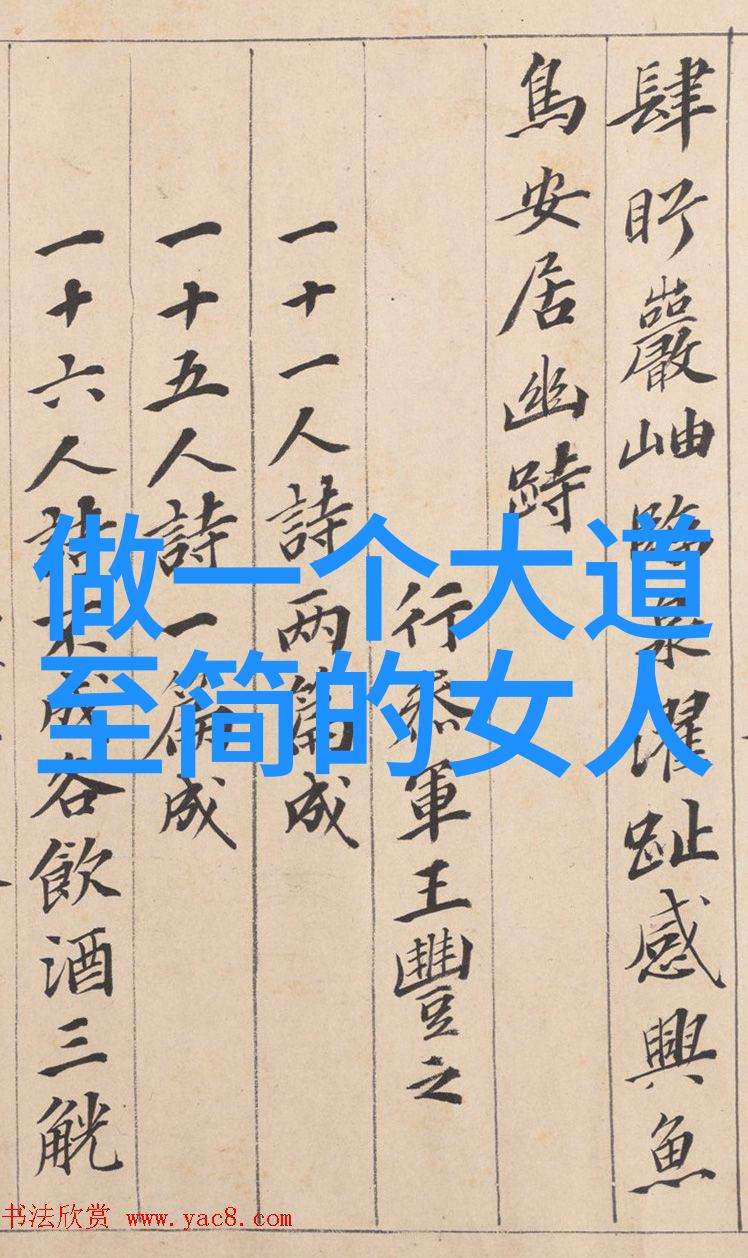 肆眄巖岫臨泉濯趾感興魚
鳥安居幽跱
行叅軍王豐之
一十一人詩两篇成
一十五人詩一篇成
一十六人詩不成各飲酒三觥
做一个大道
至简的女人
书法欣赏 www.yac8.com